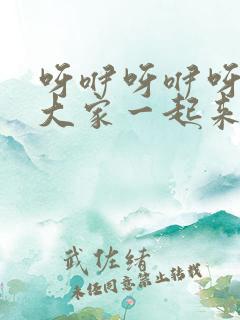 呀咿呀咿呀
大家一起来
武佐绪
未经同意禁止转载